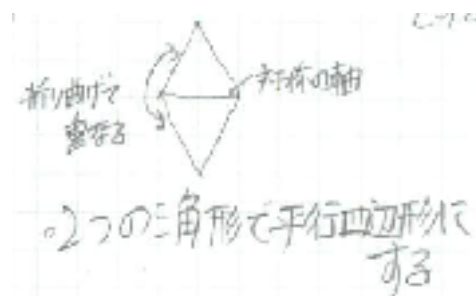 折り曲げて
重なる
対称の軸
・2つの三角形で平行四辺形に
する